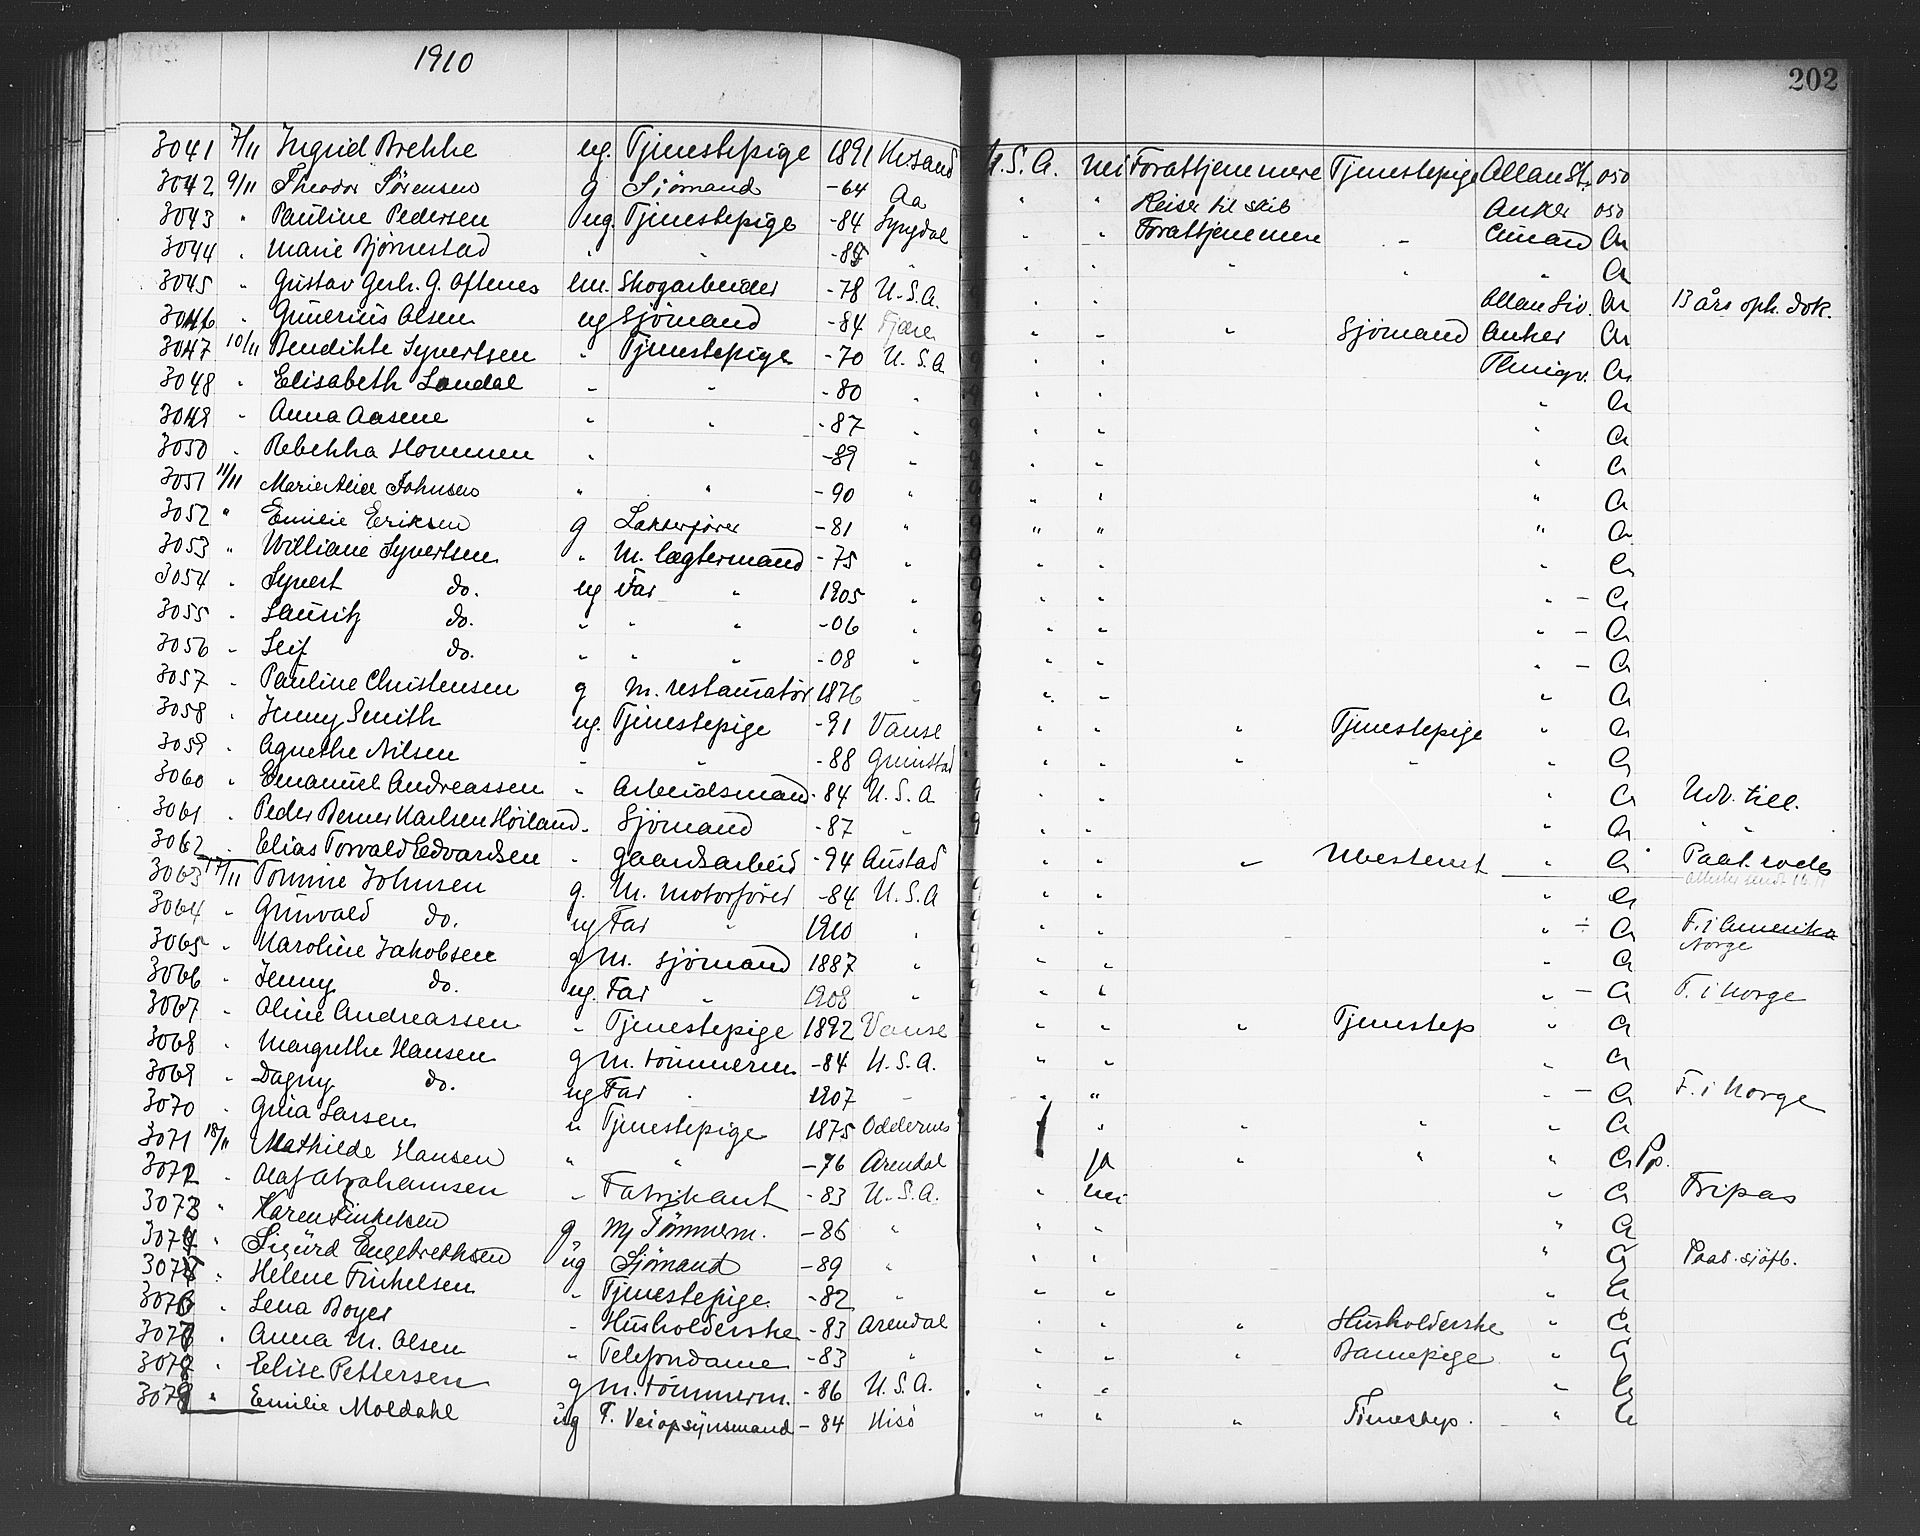 1910
202
3041 7/11 Ingrid Brekke ug. Tjenestepige 1891 Krsand U.S.A. nei For at tjene mere Tjenestepige Allan St. oso
3042 9/11 Theodor Sørensen g Sjömand -64 Aa " " Reiser til skib Anker oso
3043 " Pauline Pedersen ug. Tjenestepige -84 Lyngdal " " For at tjene mere " Cunard Cr
3044 " Marie Bjørnestad " " -85 " " " " " " Cr
3045 " Gustav Gerh. G. Oftenes em. Skogarbeider -78 U.S.A. 9 " " Allan Liv. Cr 13 års oph. dok.
3046 " Gunerius Olsen ug Sjömand -84 Fjære " " " Sjömand Anker Cr
3047 10/11 Bendikte Syvertsen " Tjenestepige -70 U.S.A 9 " " Thingv. Cr
3048 " Elisabeth Landal " " -80 " 9 " " " Cr
3049 " Anna Aasene " " -87 " 9 " " " Cr
3050 " Rebekka Hommen " -89 " 9 " " " Cr
3051 11/11 Marie Alice Johnsen " " -90 " 9 " " " Cr
3052 " Emilie Eriksen g Lekterfører -81 " 9 " " " Cr
3053 " Williane Syvertsen " M. lægtermand -75 " 9 " " " Cr
3054 " Syvert do. ug Far " 1905 " 9 " " " - Cr
3055 " Lauritz do. " " " -06 " 9 " " " - Cr
3056 " Leif do. " " " -08 " 9 " " " - Cr
3057 " Pauline Christensen g M. restauratör 1876 " 9 " " " Cr
3058 " Jenny Smith ug. Tjenestepige -91 Vanse " " " Tjenestepige " Cr
3059 " Agnethe Nilsen " " -88 Grimstad " " " " " Cr
3060 " Emanuel Andreassen " Arbeidsmand -84 U.S.A 9 " " " Cr Udv. till.
3061 " Peder Berner Karlsen Höiland " Sjömand -87 " 9 " " " Cr " "
3062 " Elias Torvald Edvardsen " Gaardsarbeid -94 Austad " " " Ubestemt " Cr Paat.
3063 17/11 Tomine Johnsen g. M. motorförer -84 U.S.A 9 " " " Cr
3064 " Gunvald do. ug Far " 1910 " 9 " " " ÷ Cr F. i Amerika Norge
3065 " Karoline Jakobsen g M. sjömand 1887 " 9 " " " Cr
3066 " Jenny do. ug. Far " 1908 " 9 " " " - Cr F. i Norge
3067 " Oline Andreassen " Tjenestepige 1892 Vanse " " " Tjenestep " Cr
3068 " Margrethe Hansen g M. tömmerm. -84 U.S.A. " " " Cr
3069 " Dagny do. ug Far " 1907 " " " " - Cr F. i Norge
3070 " Gina Larsen " Tjenestepige 1875 Oddernes " " " " Cr
3071 18/11 Mathilde Hansen " " -76 Arendal ja " " " Cr Pp.
3072 " Olaf Abrahamsen " Fabrikant -83 U.S.A. " nei " Cr Fripas
3073 " Karen Finkelsen g M Tömmerm. -86 " " " " Cr
3074 " Sigurd Engebrethsen ug Sjömand -89 " " " " Cr Paat. sjöfb.
3075 " Helene Finkelsen " Tjenestepige -82 " " " " Cr
3076 " Lena Boyer " Husholderske -83 Arendal " " " Husholderske " Cr
3077 " Anna M. Olsen " Telefondame -83 " " " " Barnepige " Cr
3078 " Elise Pettersen g M. tömmerm. -86 U.S.A. " " " Cr
3079 " Emilie Moldahl ug F. Veiopsynsmand -84 Hisö " " " Tjenestep. " Cr